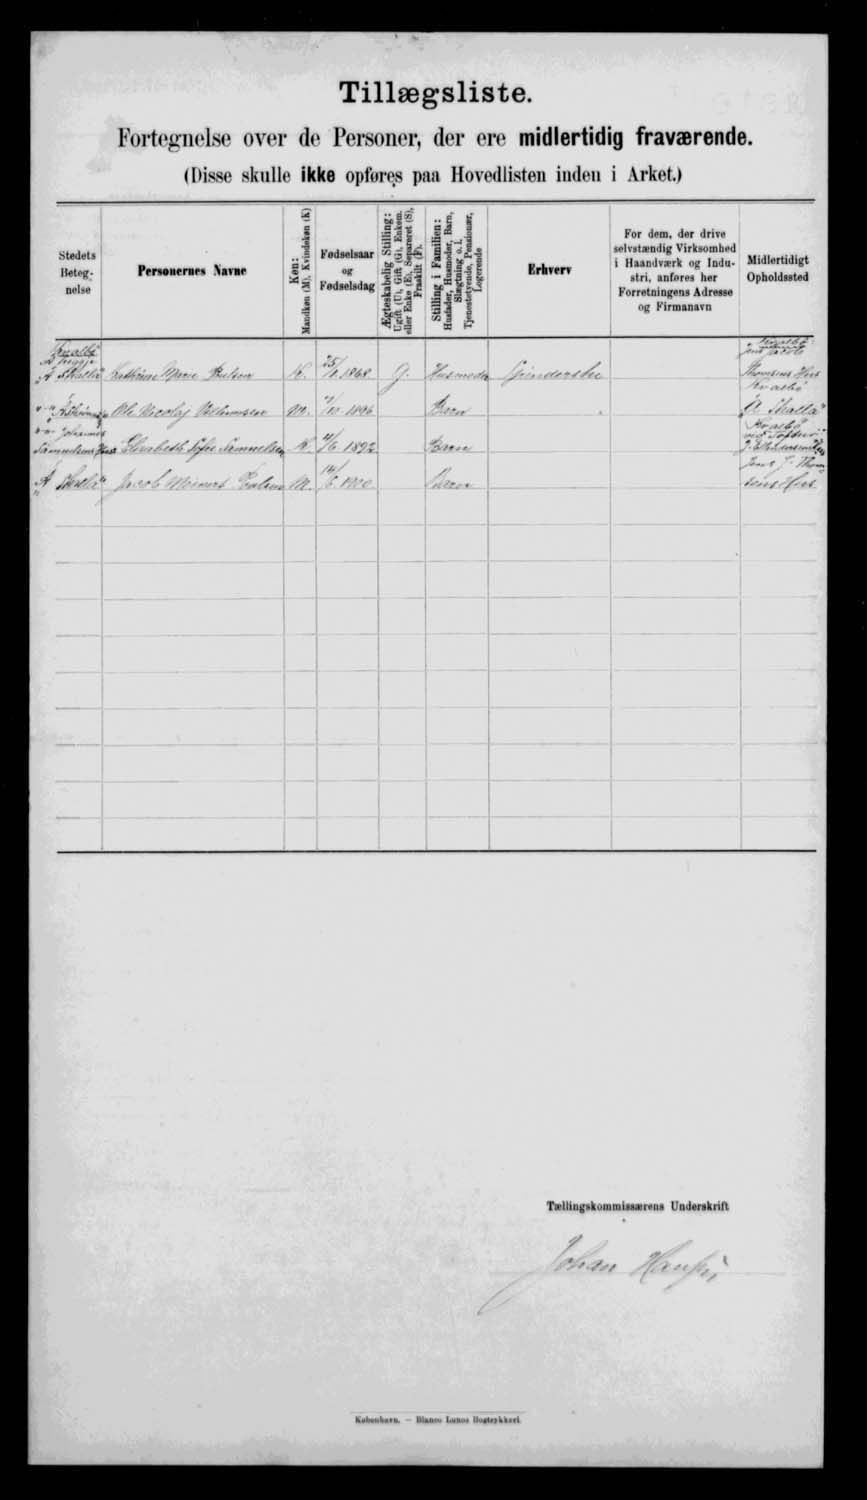 Tillægsliste.
Fortegnelse over de Personer, der ere midlertidig fraværende.
(Disse skulle ikke opføres paa Hovedlisten inden i Arket.)
Stedets
Beteg-
nelse
Personernes Navne
Køn:
Mandkøn (M), Kvindekøn (K)
Fødselsaar
og
Fødselsdag
Ægteskabelig Stilling:
Ugift (U), Gift (G), Enkem.
eller Enke (E), Separeret (S),
Fraskilt (F).
Stilling i Familien:
Husfader, Husmoder, Barn,
Slægtning o. l.
Tjenestetyende, Pensionær,
Logerende
Erhverv
For dem, der drive
selvstændig Virksomhed
i Haandværk og Indu-
stri, anføres her
Forretningens Adresse
og Firmanavn
Midlertidigt
Opholdssted
Kvalbø
"Á Skalla" Cathrine Marie Poulsen K. 25/ 1868. G. Husmoder Spinderske Thomsens Hus
Kvalbø
Ole Nicolaj M. 1896 Barn "Á Skalla"
Johannes Kvalbø
Samuelsens Hus Elisabeth Sofie Samuelsen K. /6 1892 Barn
Jens J. Thom
"Á Skalla" Jacob Poulsen M. 14/6 1900 Barn sens Hus
Tællingskommissærens Underskrift
Johan Hansen
København. — Bianco Lunos Bogtrykkeri.